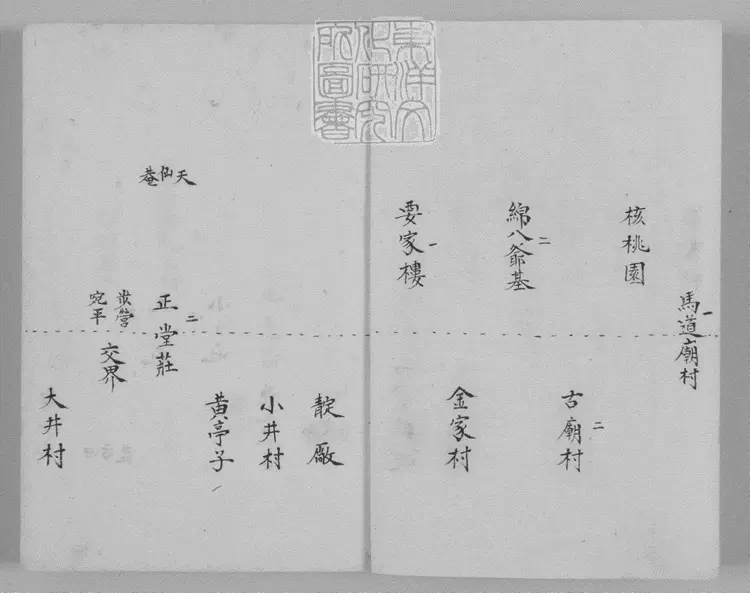 東洋文
化研究
所圖書
一
馬道廟村
核桃園
二
古廟村
二
綿八爺基
金家村
一
要家樓
靛廠
小井村
黃亭子
天仙菴
二
正堂莊
營
宛平
交界
大井村